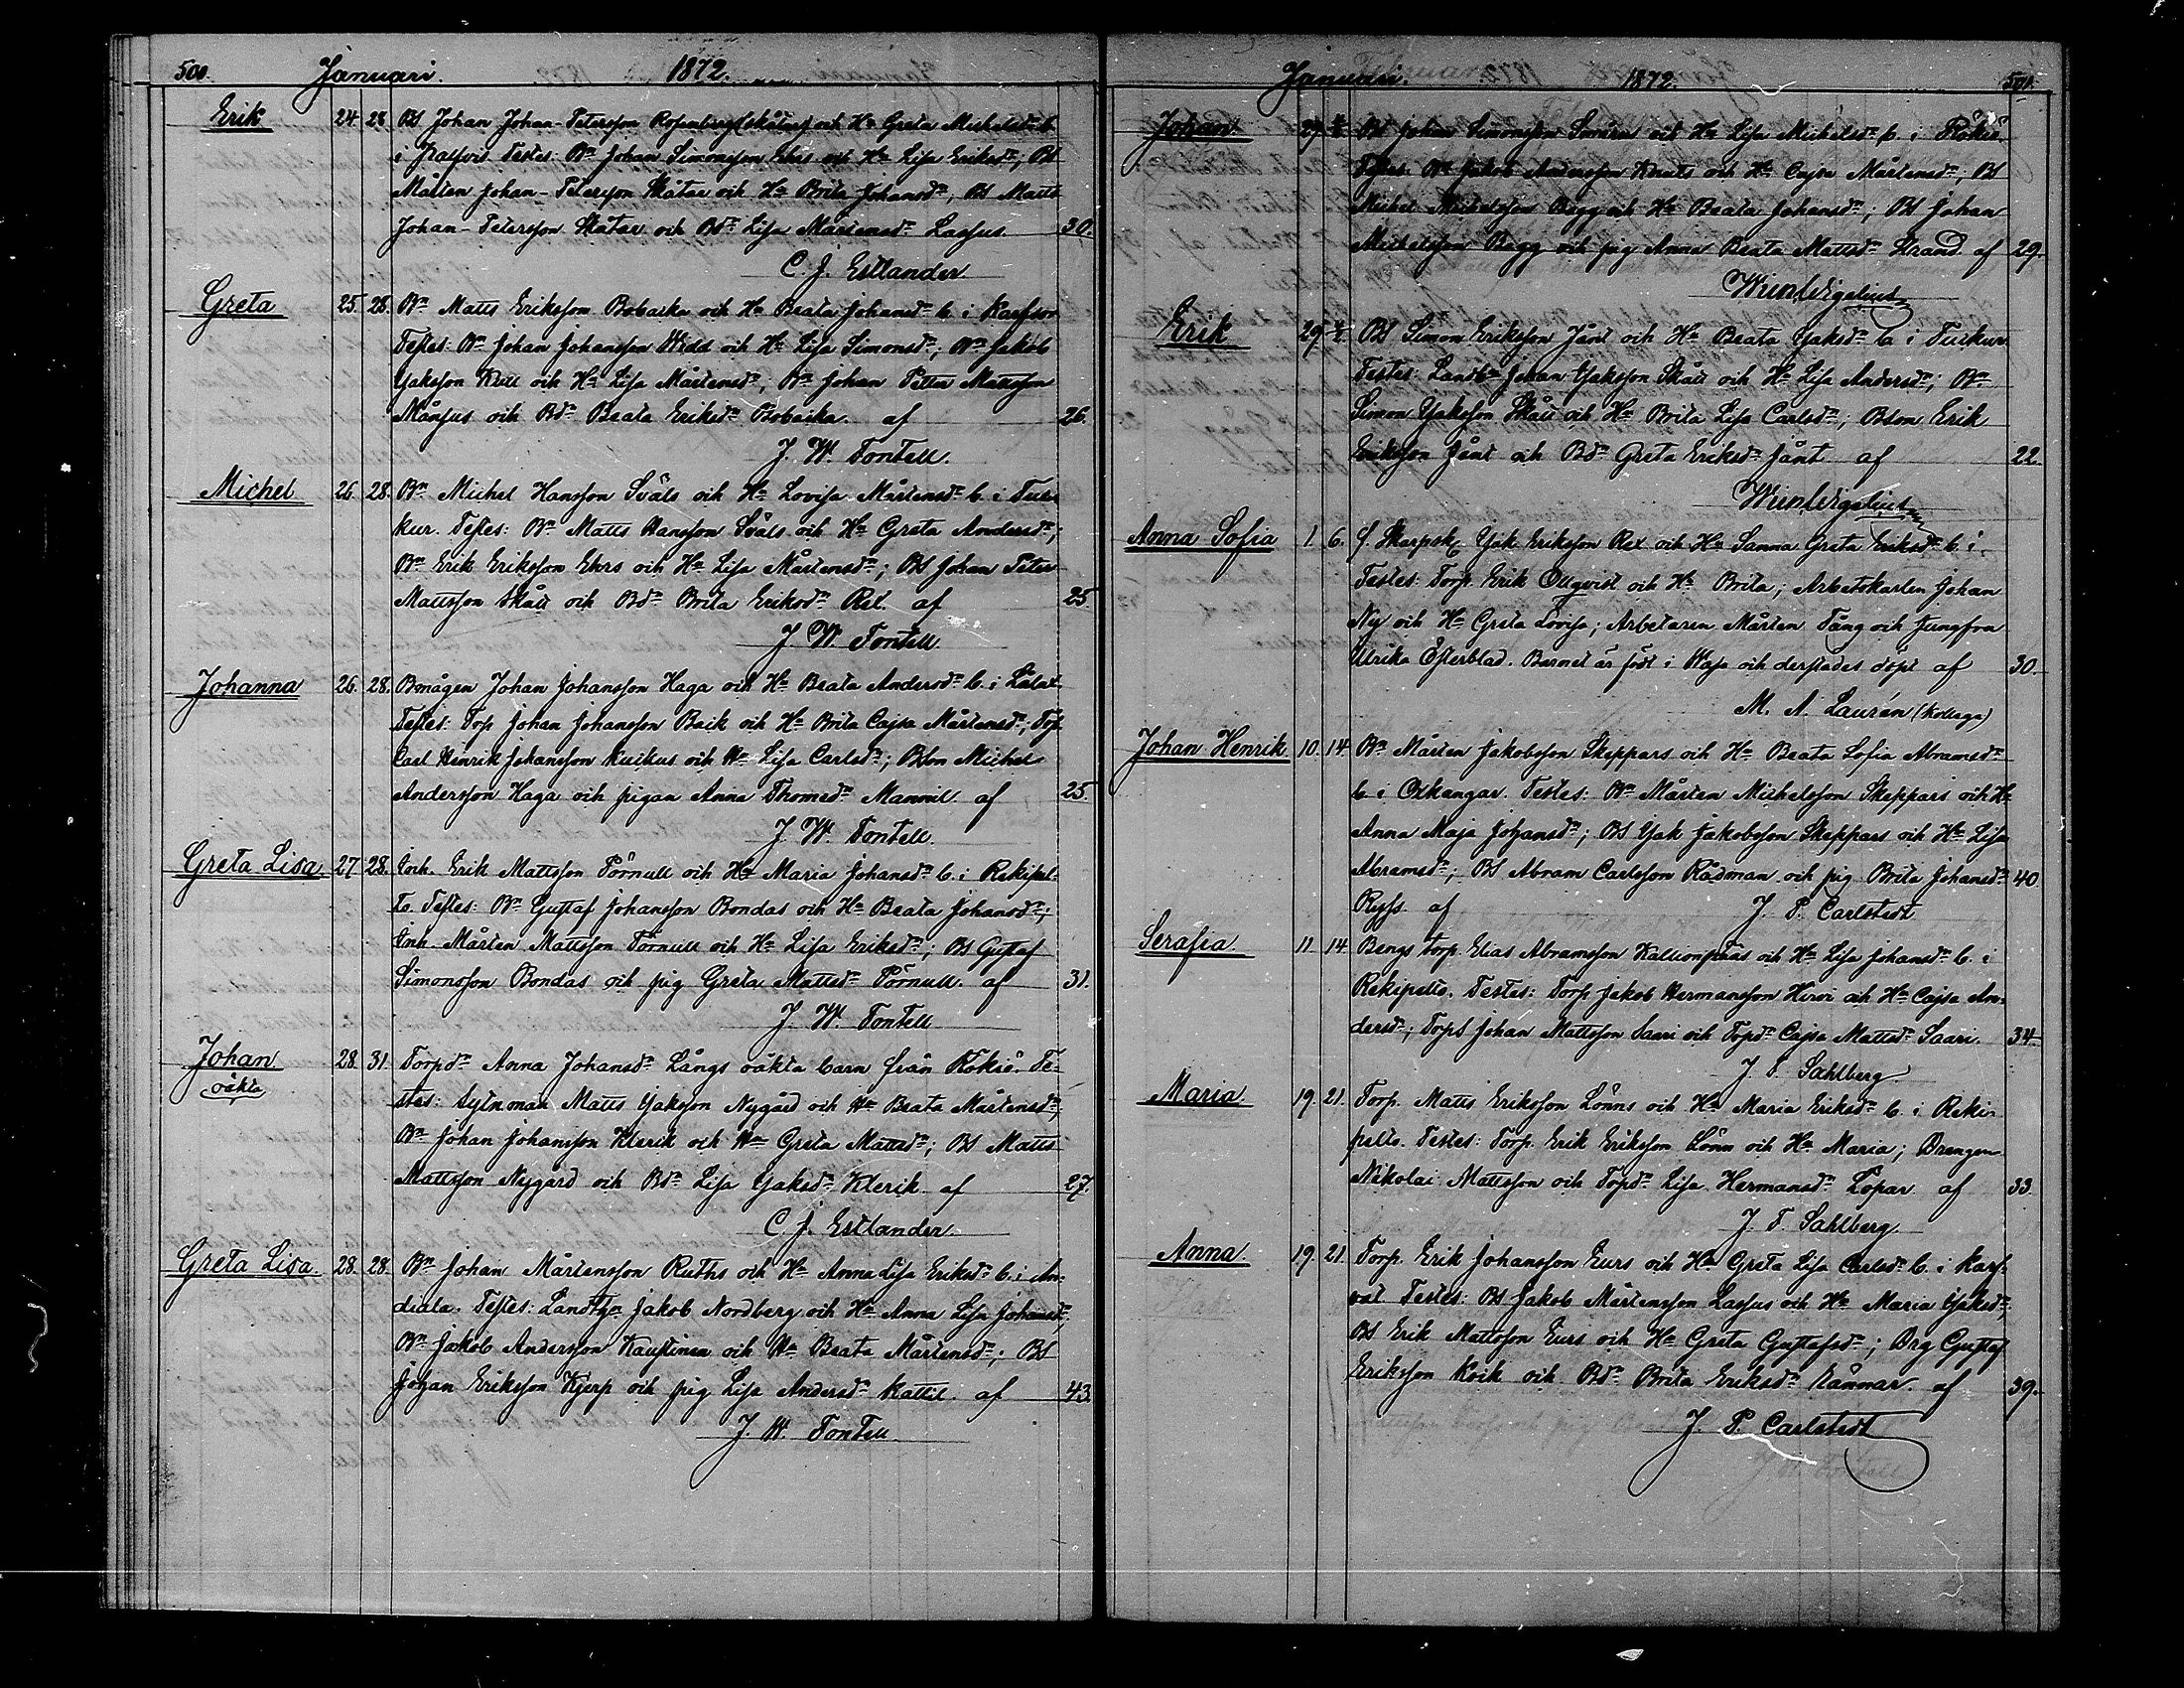 500. Januari. 1872.
Erik 24 28 BS Johan Johan-Petersson Rosenberg (Skåtar) och Hu Greta Michelsdr b.
i Testes: Bn Johan Simonsson Ehrs och Hu Lisa Eriksdr; BS
Mårten Johan-Petersson Skåtar och Hu Brita Johansdr, BS Matts
Johan-Petersson Skåtar och Bdr Lisa Mårtensdr Lassus 30.
C. J. Estlander
Greta 25. 28. Bn Matts Eriksson Bobacka och Hu Beata Johansdr b. i Karfsor
Testes: Bn Johan Johansson Widd och Hu Lisa Simonsdr; Bn Jakob
Yaksson Kull och Hu Lisa Mårtensdr, Bn Johan Petter Mattsson
Månsus och Bdr Beata Eriksdr Bobacka. af 26.
J. W. Fontell.
Michel 26. 28. Bn Michel Hansson Sväls och Hu Lovisa Mårtensdr b. i Tus-
kur. Testes: Bn Matts Hansson Sväls och Hu Greta Andersdr;
Bn Erik Eriksson Ehrs och Hu Lisa Mårtensdr; BS Johan Peter
Mattsson Skått och Bdr Brita Eriksdr af 25
J. W. Fontell.
Johanna 26. 28. Bmågen Johan Johansson Haga och Hu Beata Andersdr b. i
Testes: Torp Johan Johansson Back och Hu Brita Cajsa Mårtensdr; Torp
Carl Henrik Johansson Kuikus och Hu Lisa Carlsdr; BSon Michel
Andersson Haga och pigan Anna Thomsdr Mannil. af 25.
J. W. Fontell.
Greta Lisa. 27 28. Inh. Erik Mattsson Pörnull och Hu Maria Johansdr b. i Rekipel-
to. Testes: Bn Gustaf Johansson Bondas och Hu Beata Johansdr;
Inh. Mårten Mattsson Pörnull och Hu Lisa Eriksdr; BS Gustaf
Simonsson Bondas och pig Greta Mattsdr Pörnull. af 31.
J. W. Fontell
Johan. 28. 31. Torpdr Anna Johansdr Långs oäkta barn från Kokiö. Te-
oäkta
stes: Sytnman Matts Yaksson Nygård och Hu Beata Mårtensdr;
Bn Johan Johansson Klerik och Hu Greta Mattsdr; BS Matts
Mattsson Nygård och Bdr Lisa Yaksdr Klerik af 27.
C. J. Estlander.
Greta Lisa. 28. 28. Bn Johan Mårtensson Ruths och Hu Anna Lisa Eriksdr b. i An-
diala. Testes: Landtbr Jakob Nordberg och Hu Anna Lisa Johansdr,
Bn Jakob Andersson Kaustinen och Hu Beata Mårtensdr; BS
Johan Eriksson Kjerp och pig Lisa Andersdr Kattil. af 43.
J. W. Fontell
Januari. 1872. 501.
Johan 29. BS Johan Simonsson och Hu Lisa Michelsdr b. i
Testes. Bn Jakob Andersson Knuts och Hu Cajsa Mårtensdr; BS
Michel Michelsson Bagg och Hu Beata Johansdr; BS Johan
Michelsson Bagg och pig Anna Beata Mattsdr Strand af 29.
Wm Wigelius
Erik 29. BS Simon Eriksson Jånt och Hu Beata Yaksdr b. i Tuskur.
Testes: Landbn Johan Yaksson Skått och Hu Lisa Andersdr; Bn
Simon Yaksson Skått och Hu Brita Lisa Carlsdr; BSon Erik
Eriksson Jånt och Bdr Greta Eriksdr Jånt af 22.
Wm Wigelius
Anna Sofia 1 6. f. Skarpsk. Yak Eriksson Rex och Hu Sanna Greta Eriksdr b. i.
Testes: Torp. Erik Öllqvist och Hu Brita; Arbetskarlen Johan
Ny och Hu Greta Lovisa; Arbetaren Mårten Tång och Jungfru
Ulrika Österblad. Barnet är födt i Wasa och derstädes döpt af 30.
M. A. Laurén (Kollega)
Johan Henrik. 10. 14. Bn Mårten Jakobsson Skeppars och Hu Beata Sofia Abramsdr
b. i Oxkangar. Testes: Bn Mårten Michelsson Skeppars och Hu
Anna Maja Johansdr; BS Yak Jakobsson Skeppars och Hu Lisa
Abramsdr; BS Abram Carlsson Rådman och pig Brita Johansdr 40
Ryss. af J. P. Carlstedt
Serafia 11 14. Bengs torp. Elias Abramsson Kallionpää och Hu Lisa Johansdr b. i
Rekipelto. Testes: Torp Jakob Hermansson Hirvi och Hu Cajsa An-
dersdr; TorpS Johan Mattsson Saari och Torpdr Cajsa Mattsdr Saari. 34.
J. T. Sahlberg.
Maria 19. 21. Torp. Matts Eriksson Lönns och Hu Maria Eriksdr b. i Reki-
pelto. Testes: Torp. Erik Eriksson Lönn och Hu Maria; Drengen
Nikolai Mattsson och Torpdr Lisa Hermansdr Lopar af 33.
J. T. Sahlberg
Anna. 19. 21. Torp. Erik Johansson Eurs och Hu Greta Lisa Carlsdr b. i Karf-
sat Testes: BS Jakob Mårtensson Lassus och Hu Maria Yaksdr;
BS Erik Mattsson Eurs och Hu Greta Gustafsdr; Drg Gustaf
Eriksson Koik och Bdr Brita Eriksdr af 39.
J. P. Carlstedt